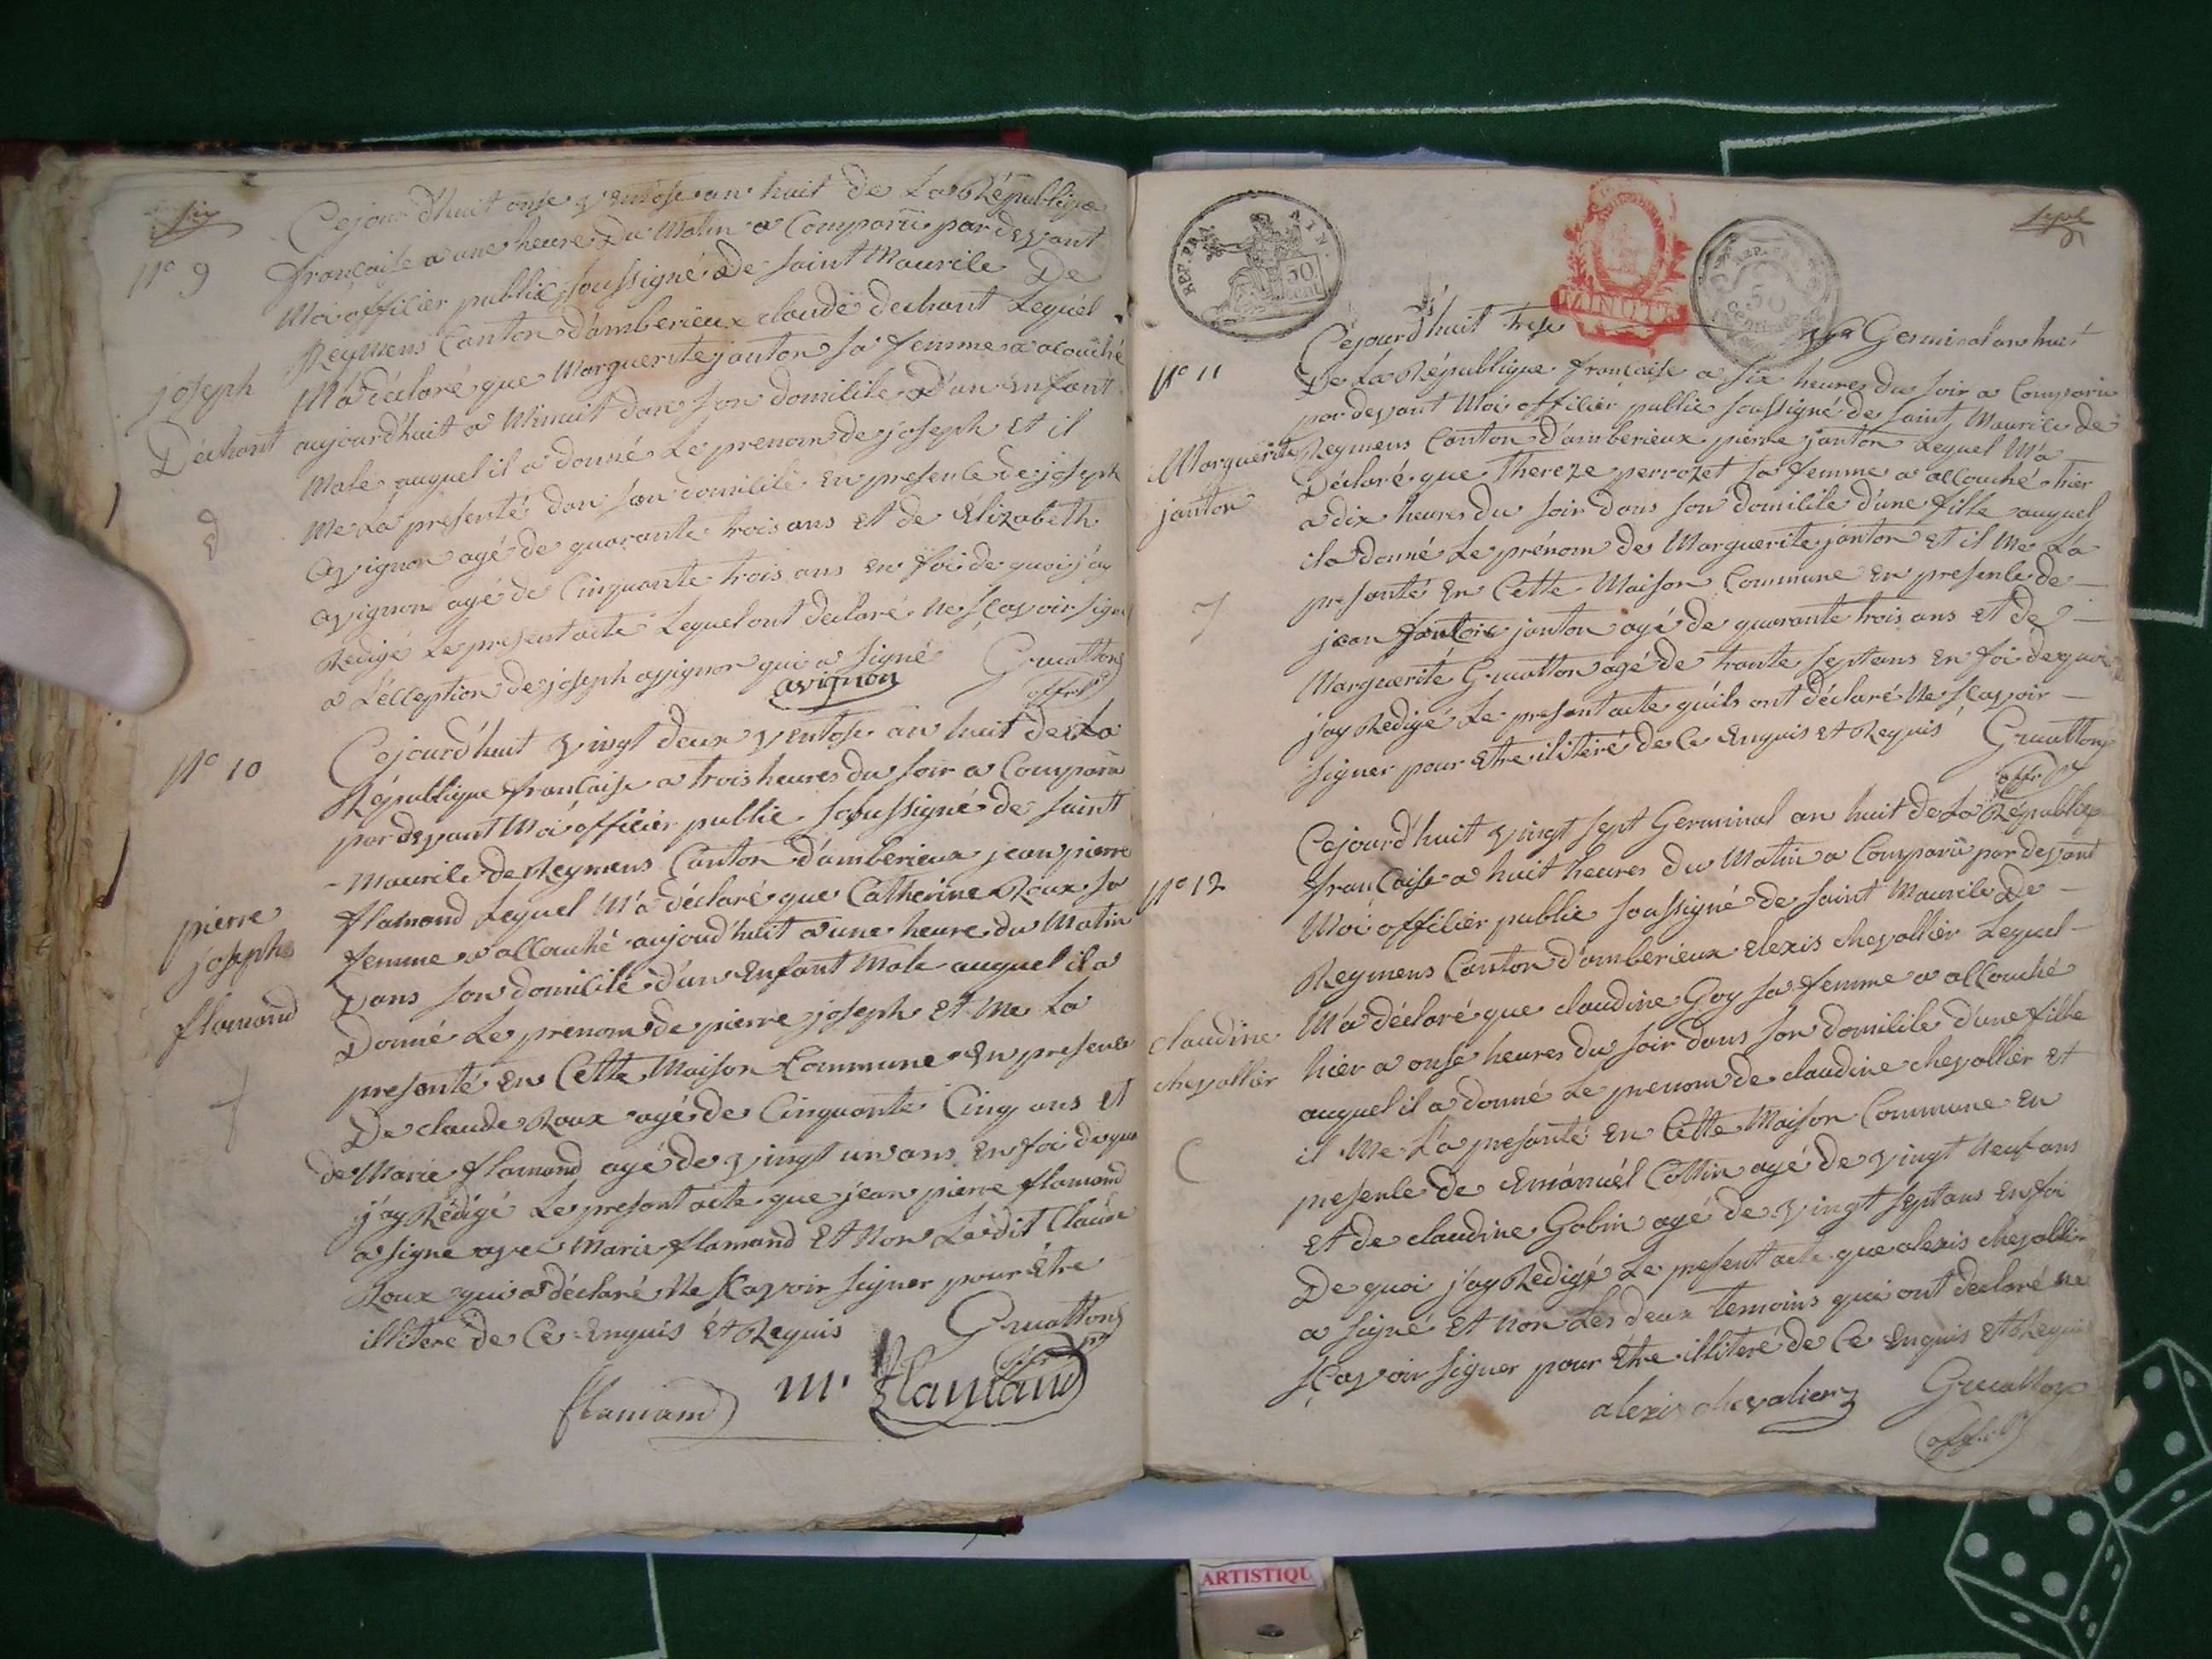 six
N° 9
joseph
Déchant
Cejourd'huit onse ventose an huit de La République
française a une heure Du Matin a Comparü pardevant
Moi officier public soussigné de saint Maurice De
Reymens Canton d'amberieux claude dechant Lequel
M'a déclaré que Marguerite janton sa femme a acouché
aujourd'huit a Minuit dan son domicile d'un Enfant
Male auquel il a donné Le prenom de joseph Et il
Me La presenté dan son domicile En presence de joseph
avignon agé de quarante trois ans Et de Elizabeth
avignon agé de Cinquante trois ans En foi de quoi j'ay
Redigé Le present acte Lequel ont declaré Ne sçavoir signe
a L'éception de joseph avignon qui a signé Gruatton
avignon offr p
N° 10
pierre
joseph
flamand
Cejourd'huit vingt deux ventose an huit de La
République française a trois heures du soir a Comparü
pardevant Moi officier public soussigné de saint
-Maurice de Reymens Canton d'amberieux jean pierre
flamand Lequel M'a déclaré que Catherine Roux sa
femme a accouché aujoud'huit a une heure du Matin
Dans son domicile d'un Enfant Male auquel il a
Donné Le prenom de pierre joseph Et Me La
presenté En Cette Maison Commune En presence
De claude Roux agé de Cinquante Cinq ans Et
de Marie flamand agé de vingt un ans En foi de quoi
j'ay Rédigé Le present acte que jean pierre flamand
a signe avec Marie flamand Et Non Ledit Claude
Roux qui a déclaré Ne sçavoir signer pour Être
illiteré de Ce Enquis Et Requis Gruatton
offr p
flamand m. flamand
sept
REP. FRA. AIN.
50 CENT.
MINUTE
REP. FRA.
50
Centimes
N° 11
Marguerite
janton
Céjourd'huit trese Germinal an huit
De La République française a six heures du soir a Comparü
pardevant Moi officier public soussigné de saint Maurice de
Reymens Canton d'amberieux pierre janton Lequel M'a
Déclaré que Thereze perrozet sa femme a accouché hier
a dix heures du soir dans son domicile d'une fille auquel
il a donné Le prénom de Marguerite janton Et il Me L'a
presanté En Cette Maison Commune En presence de
jean janton agé de quarante trois ans Et de
Marguerite Gruatton agé de trante sept ans En foi de quoi
j'ay Redigé Le present acte qu'ils ont déclaré Ne sçavoir
signer pour Etre iliteré de Ce Enquis Et Requis Gruatton
offr p
N° 12
claudine
chevallier
Cejourd'huit vingt sept Germinal an huit de La République
française a huit heures du Matin a Comparü pardevant
Moi officier public soussigné de saint Maurice De
Reymens Canton d'amberieux Elexis chevallier Lequel
M'a déclaré que claudine Goy sa femme a accouché
hier a onse heures du soir dans son domicile d'une fille
auquel il a donné Le prenom de claudine chevallier Et
il Me L'a presanté En Cette Maison Commune En
presence de Emánuél Cottin agé de vingt Neuf ans
Et de claudine Gobin agé de vingt sept ans En foi
De quoi j'ay Redigé Le present acte que alexis chevallier
a signé Et Non Les deux temoins qui ont declaré ne
sçavoir signer pour Être illiteré de Ce Enquis Et Requis
alexis chevalier Gruatton
offr p
ARTISTIQU